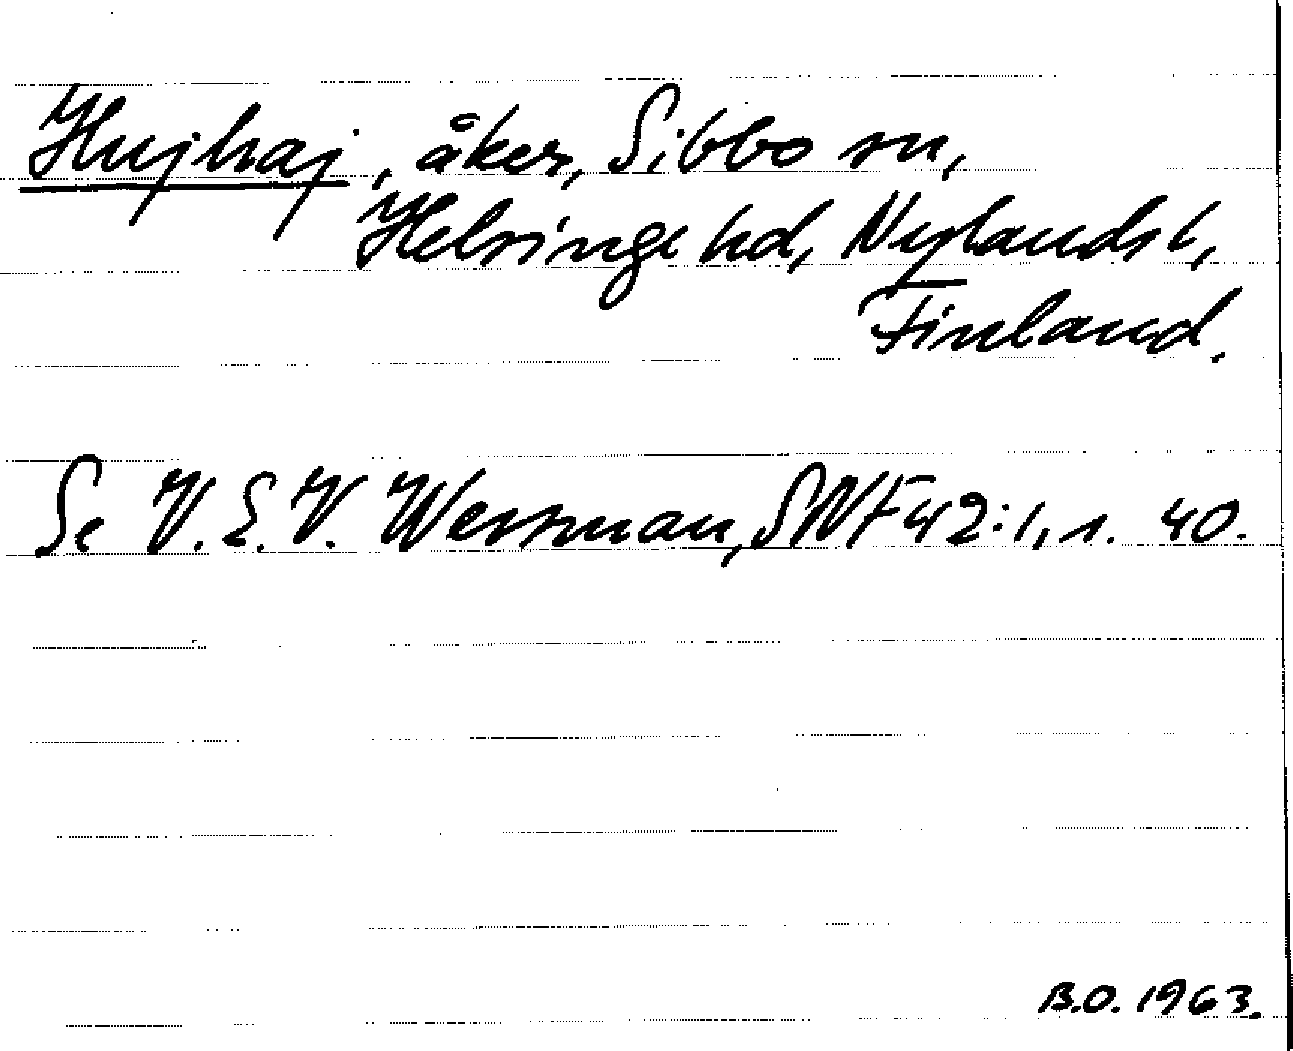 Hujhaj, åker, Sibbo sn,
Helsinge hd, Nylands l,
Finland.
Se V. E. V. Wessman, SNF 42:1, s. 40.
B.O. 1963.